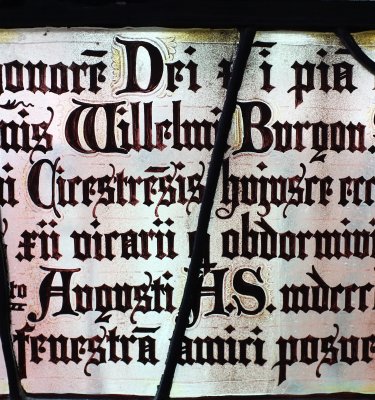 onorē Dei ī piā
nis Willelmi Burgon
i Cicestrēsis hujusce ecc
xii vicarii obdormivi
to Augusti A.S. mdccc
fenestrā amici posve